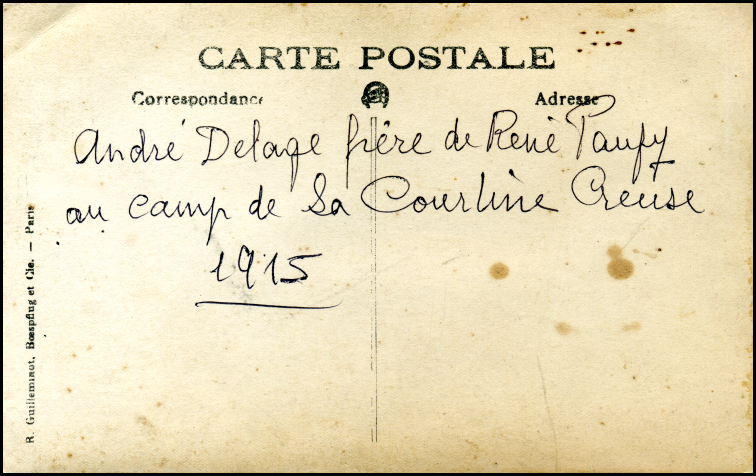 CARTE POSTALE
Correspondance
Adresse
André Delage frère de René Paufy
au camp de La Courtine Creuse
1915
R. Guilleminot, Bœspflug et Cie. — Paris